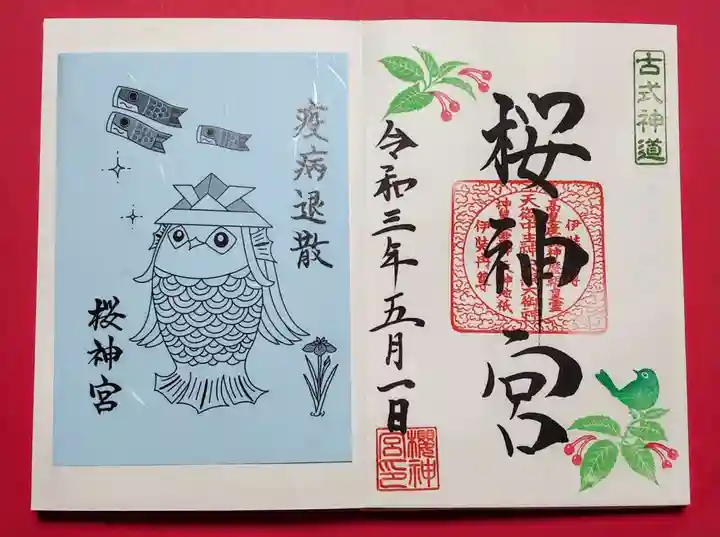 古式神道
桜神宮
令和三年五月一日
櫻神
宮印
疫病退散
桜神宮